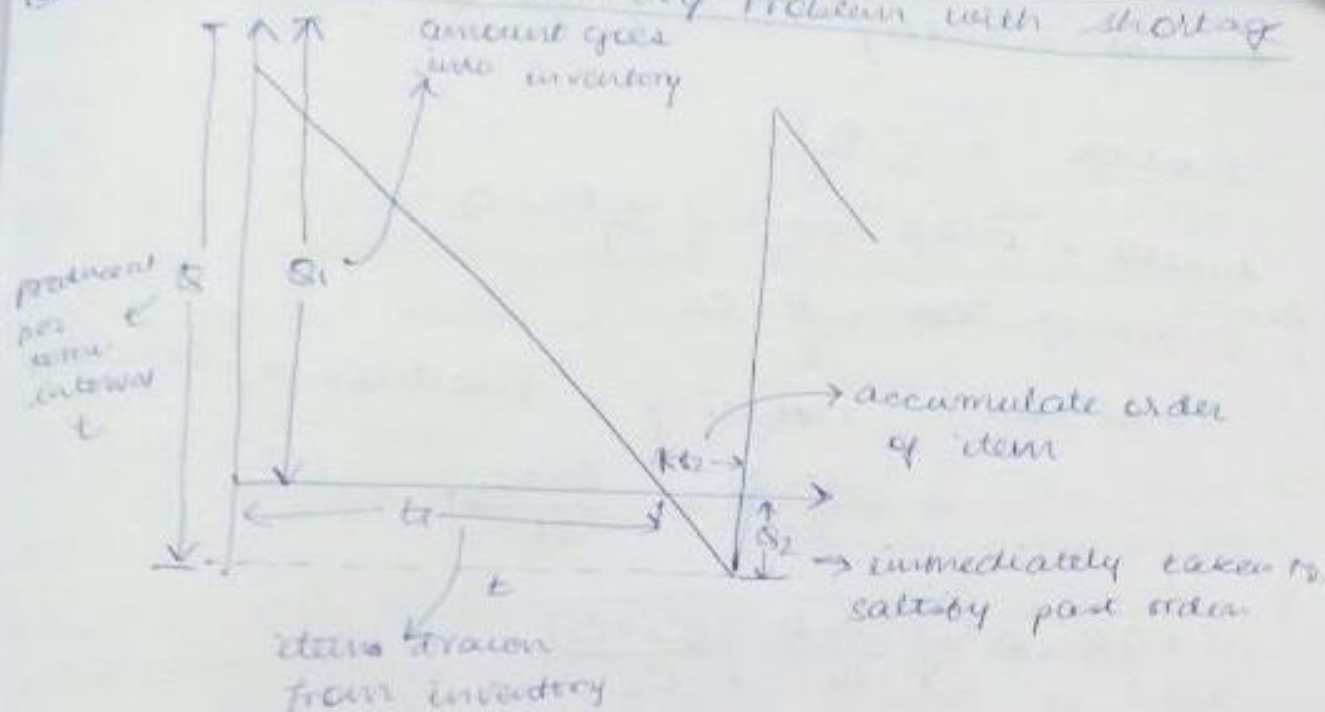 Problem with shortage
amount goes
into inventory
Q
Q1
produced
per
time
interval
t
accumulate order
of item
Kt2
t1
Q2
immediately taken to
satisby past order
t
items drawn
from inventory